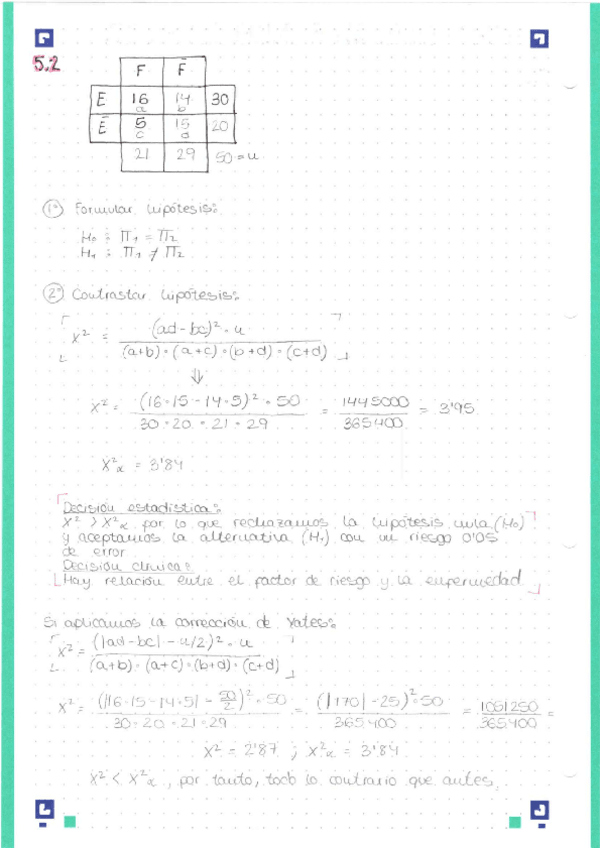 5.2
F F̄
E 16 14 30
a b
Ē 5 15 20
c d
21 29 50 = n
1º Formular hipótesis:
H₀ : Π₁ = Π₂
H₁ : Π₁ ≠ Π₂
2º Contrastar hipótesis:
X² = (ad - bc)² · n / (a+b) · (a+c) · (b+d) · (c+d)
⇓
X² = (16·15 - 14·5)² · 50 / 30 · 20 · 21 · 29 = 1445000 / 365400 = 3'95
X²α = 3'84
Decisión estadística:
X² > X²α por lo que rechazamos la hipótesis nula (H₀)
y aceptamos la alternativa (H₁) con un riesgo 0'05
de error
Decisión clínica:
Hay relación entre el factor de riesgo y la enfermedad
Si aplicamos la corrección de Yates:
X² = (|ad - bc| - n/2)² · n / (a+b) · (a+c) · (b+d) · (c+d)
X² = (|16·15 - 14·5| - 50/2)² · 50 / 30 · 20 · 21 · 29 = (|170| - 25)² · 50 / 365400 = 1051250 / 365400 =
X² = 2'87 ; X²α = 3'84
X² < X²α, por tanto, todo lo contrario que antes.